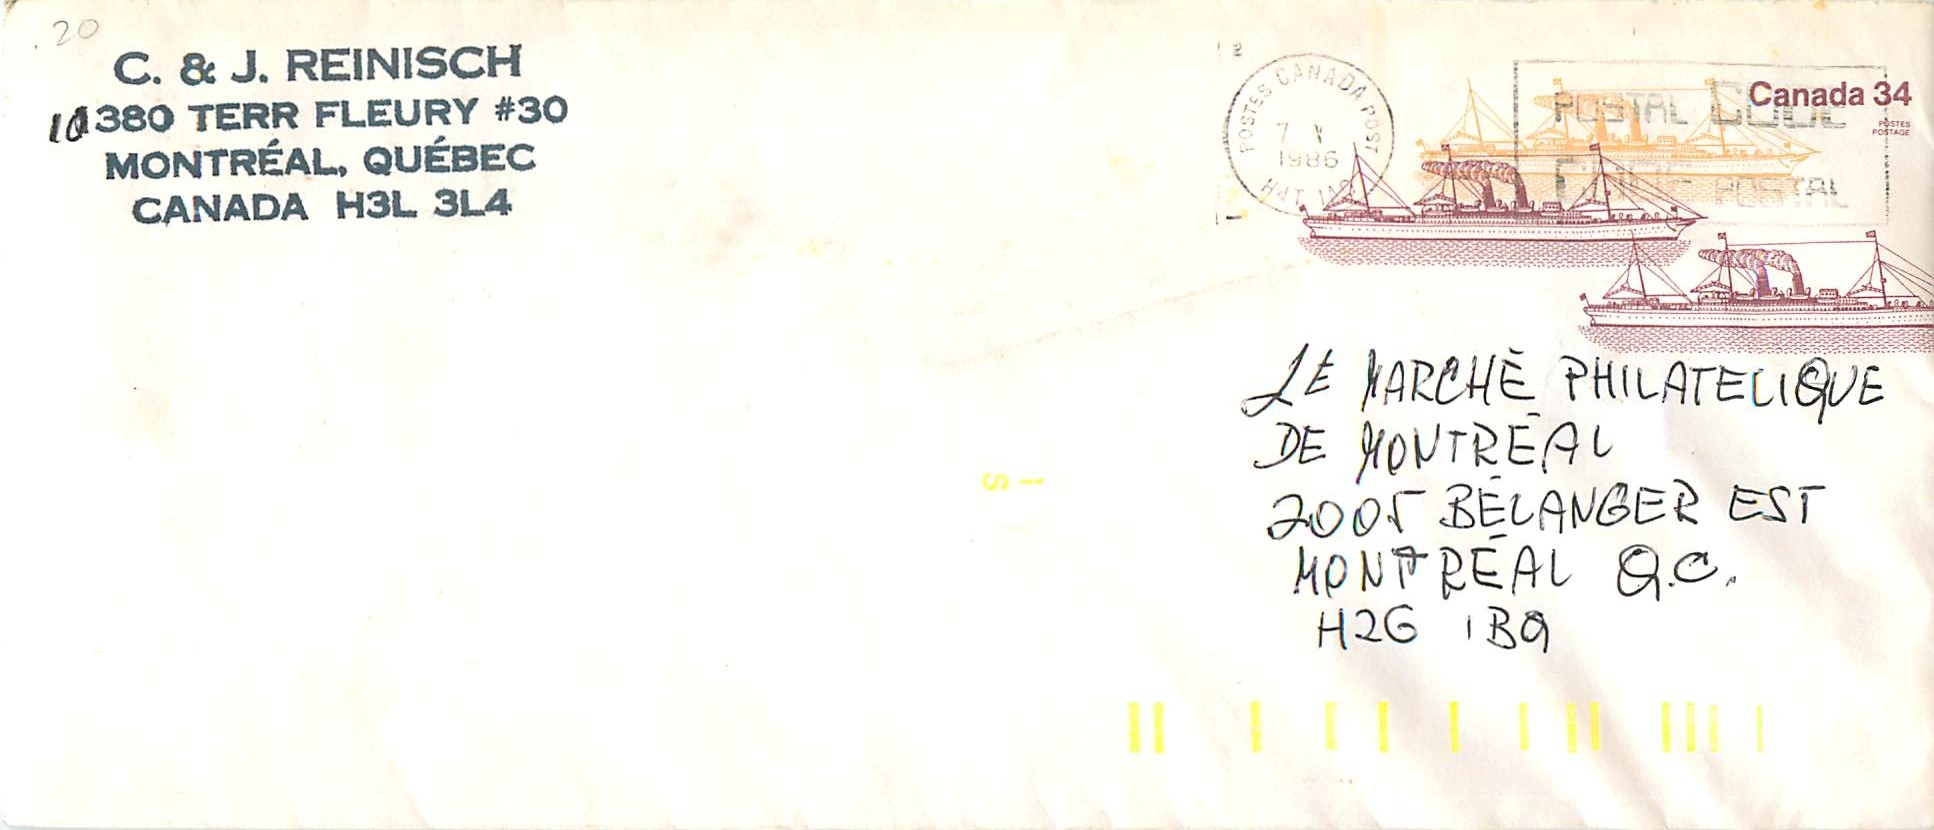 20
C. & J. REINISCH
10380 TERR FLEURY #30
MONTRÉAL, QUÉBEC
CANADA H3L 3L4
2
POSTES CANADA POST
7 V
1986
POSTAL CODE
POSTAL
Canada 34
POSTES
POSTAGE
LE MARCHÉ PHILATELIQUE
DE MONTRÉAL
2005 BÉLANGER EST
MONTRÉAL Q.C.
H2G 1B9
S